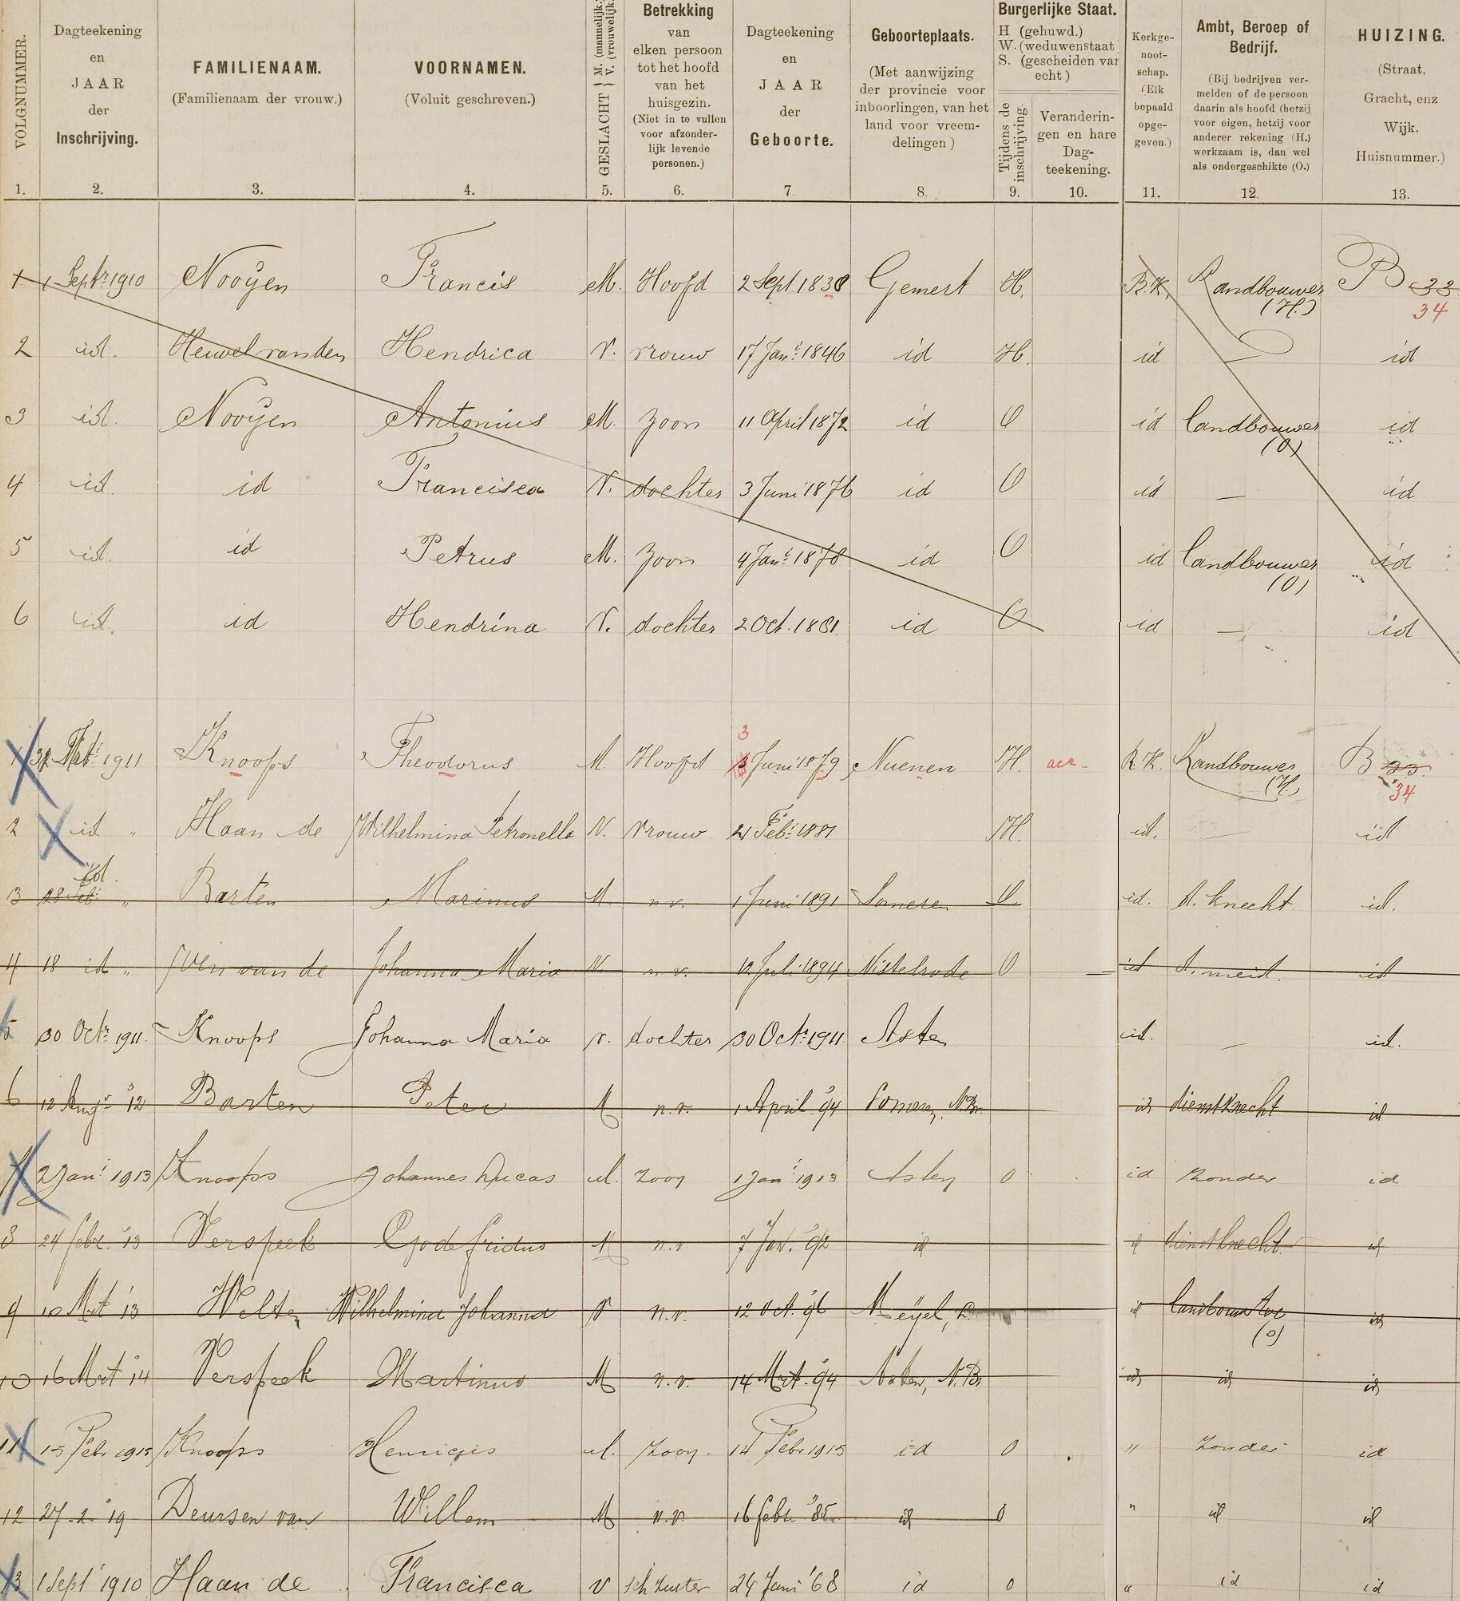 VOLGNUMMER.
Dagteekening
en
JAAR
der
Inschrijving.
FAMILIENAAM.
(Familienaam der vrouw.)
VOORNAMEN.
(Voluit geschreven.)
GESLACHT M. (mannelijk.) V. (vrouwelijk.)
Betrekking
van
elken persoon
tot het hoofd
van het
huisgezin.
(Niet in te vullen
voor afzonder-
lijk levende
personen.)
Dagteekening
en
JAAR
der
Geboorte.
Geboorteplaats.
(Met aanwijzing
der provincie voor
inboorlingen, van het
land voor vreem-
delingen)
Burgerlijke Staat.
H (gehuwd.)
W. (weduwenstaat
S. (gescheiden van
echt)
Tijdens de inschrijving.
Veranderin-
gen en hare
Dag-
teekening.
Kerkge-
noot-
schap.
(Elk
bepaald
opge-
geven.)
Ambt, Beroep of
Bedrijf.
(Bij bedrijven ver-
melden of de persoon
daarin als hoofd (hetzij
voor eigen, hetzij voor
anderer rekening (H.)
werkzaam is, dan wel
als ondergeschikte (O.)
HUIZING.
(Straat,
Gracht, enz
Wijk.
Huisnummer.)
1. 2. 3. 4. 5. 6. 7 8. 9. 10. 11. 12. 13.
1 1 Septr 1910 Nooÿen Francis M. Hoofd 2 Sept. 1838 Gemert H. R.K. Landbouwer (H.) B 33 34
2 id. Heuvel van den Hendrica V. vrouw 17 Jan. 1846 id H. id — id
3 id. Nooÿen Antonius M. zoon 11 April 1872 id O id landbouwer (O) id
4 id id Francisca V. dochter 3 Juni 1876 id O id — id
5 id. id Petrus M. zoon 4 Jan. 1878 id O id landbouwer (O) id
6 id. id Hendrina V. dochter 2 Oct. 1881 id O id — id
1911 Knoops Theodorus M Hoofd 3 Juni 1879 Nuenen H. R.K. Landbouwer (H.) B 33 34
2 id " Haan de Wilhelmina Petronella V. Vrouw 21 Feb. 1881 H. id. id
3 28 Feb. id. " Barten Marinus M. n.v. 1 Juni 1891 Someren O. id. d. knecht id.
4 18 id " Ven van de Johanna Maria V. n.v. 12 Juli 1894 Nistelrode O id d. meid. id
5 30 Octr 1911. Knoops Johanna Maria v. dochter 30 Oct. 1911 Asten id. — id.
6 12 Aug. '12 Barten Peter M n.v. 1 April '94 N.Br. id dienstknecht id
7 2 Jan. 1913 Knoops Johannes Lucas M. zoon 1 Jan. 1913 Asten O id zonder id
8 24 febr. '13 Verspeek Godefridus M n.v. '92 id id dienstknecht id
9 10 Mrt '13 Welten Wilhelmina Johanna V n.v. 12 Oct. '96 Meÿel, L. id (O) id
10 16 Mrt '14 Verspeek Martinus M n.v. 14 Mrt. '94 Asten, N.Br id id id
11 15 Febr 1915 Knoops Henricus M. zoon. 14 Febr 1915 id O " zonder id
12 27-2-'19 Deursen van Willem M n.v. 16 febr. '85 id O " id id
13 1 Sept '1910 Haan de Francisca V sch zuster 24 Juni '68 id O " id id